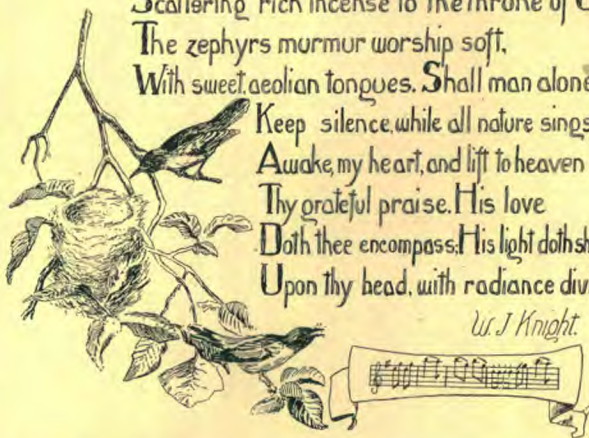 Scattering rich incense to the throne of
The zephyrs murmur worship soft,
With sweet aeolian tongues. Shall man alone
Keep silence, while all nature sings
Awake, my heart, and lift to heaven
Thy grateful praise. His love
Doth thee encompass; His light doth sh
Upon thy head, with radiance div
W. J Knight.